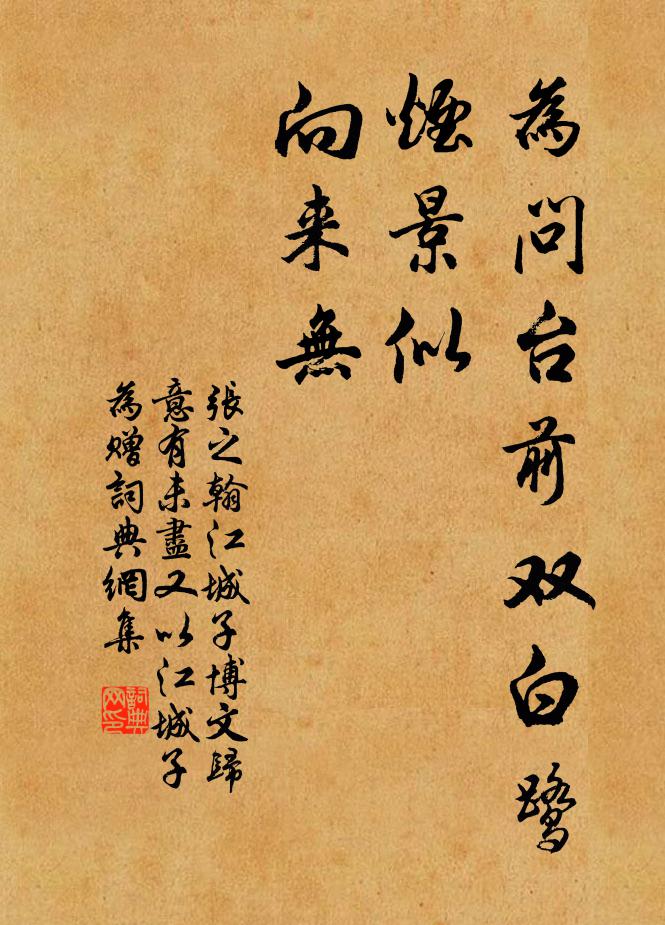 為問台前双白鷺
煙景似
向来無
張之翰江城子博文歸
意有未盡又以江城子
為贈詞典網集
詞典网印